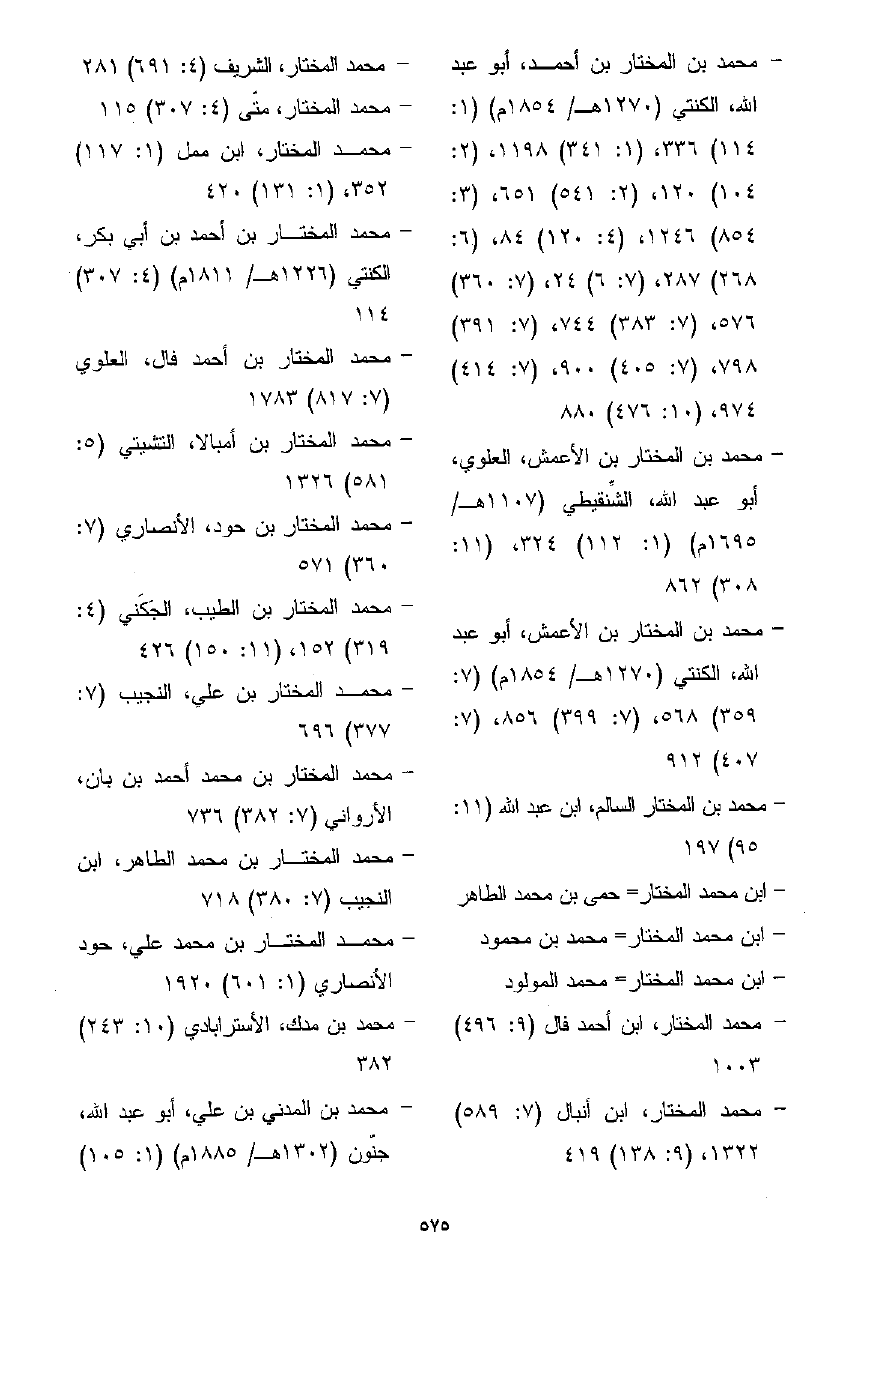 - محمد بن المختار بن أحمـد، أبو عبد
الله، الكنتي (١٢٧٠هـ/ ١٨٥٤م) (١:
١١٤) ٣٣٦، (١: ٣٤١) ١١٩٨، (٢:
١٠٤) ١٢٠، (٢: ٥٤١) ٦٥١، (٣:
٨٥٤) ١٢٤٦، (٤: ١٢٠) ٨٤، (٦:
٢٦٨) ٢٨٧، (٧: ٦) ٢٤، (٧: ٣٦٠)
٥٧٦، (٧: ٣٨٣) ٧٤٤، (٧: ٣٩١)
٧٩٨، (٧: ٤٠٥) ٩٠٠، (٧: ٤١٤)
٩٧٤، (١٠: ٤٧٦) ٨٨٠
- محمد بن المختار بن الأعمش، العلوي،
أبو عبد الله، الشّنقيطي (١١٠٧هـ/
١٦٩٥م) (١: ١١٢) ٣٢٤، (١١:
٣٠٨) ٨٦٢
- محمد بن المختار بن الأعمش، أبو عبد
الله، الكنتي (١٢٧٠هـ/ ١٨٥٤م) (٧:
٣٥٩) ٥٦٨، (٧: ٣٩٩) ٨٥٦، (٧:
٤٠٧) ٩١٢
- محمد بن المختار السالم، ابن عبد الله (١١:
٩٥) ١٩٧
- ابن محمد المختار= حمى بن محمد الطاهر
- ابن محمد المختار= محمد بن محمود
- ابن محمد المختار= محمد المولود
- محمد المختار، ابن أحمد فال (٩: ٤٩٦)
١٠٠٣
- محمد المختار، ابن أنبال (٧: ٥٨٩)
١٣٢٢، (٩: ١٣٨) ٤١٩
- محمد المختار، الشريف (٤: ٦٩١) ٢٨١
- محمد المختار، متّى (٤: ٣٠٧) ١١٥
- محمـد المختار، ابن ممل (١: ١١٧)
٣٥٢، (١: ١٣١) ٤٢٠
- محمد المختـار بن أحمد بن أبي بكر،
الكنتي (١٢٢٦هـ/ ١٨١١م) (٤: ٣٠٧)
١١٤
- محمد المختار بن أحمد فال، العلوي
(٧: ٨١٧) ١٧٨٣
- محمد المختار بن أمبالا، التشيتي (٥:
٥٨١) ١٣٢٦
- محمد المختار بن حود، الأنصاري (٧:
٣٦٠) ٥٧١
- محمد المختار بن الطيب، الجَكَني (٤:
٣١٩) ١٥٢، (١١: ١٥٠) ٤٢٦
- محمـد المختار بن علي، النجيب (٧:
٣٧٧) ٦٩٦
- محمد المختار بن محمد أحمد بن بان،
الأرواني (٧: ٣٨٢) ٧٣٦
- محمد المختـار بن محمد الطاهر، ابن
النجيب (٧: ٣٨٠) ٧١٨
- محمـد المختـار بن محمد علي، حود
الأنصاري (١: ٦٠١) ١٩٢٠
- محمد بن مدك، الأسترابادي (١٠: ٢٤٣)
٣٨٢
- محمد بن المدني بن علي، أبو عبد الله،
جنّون (١٣٠٢هـ/ ١٨٨٥م) (١: ١٠٥)
٥٧٥